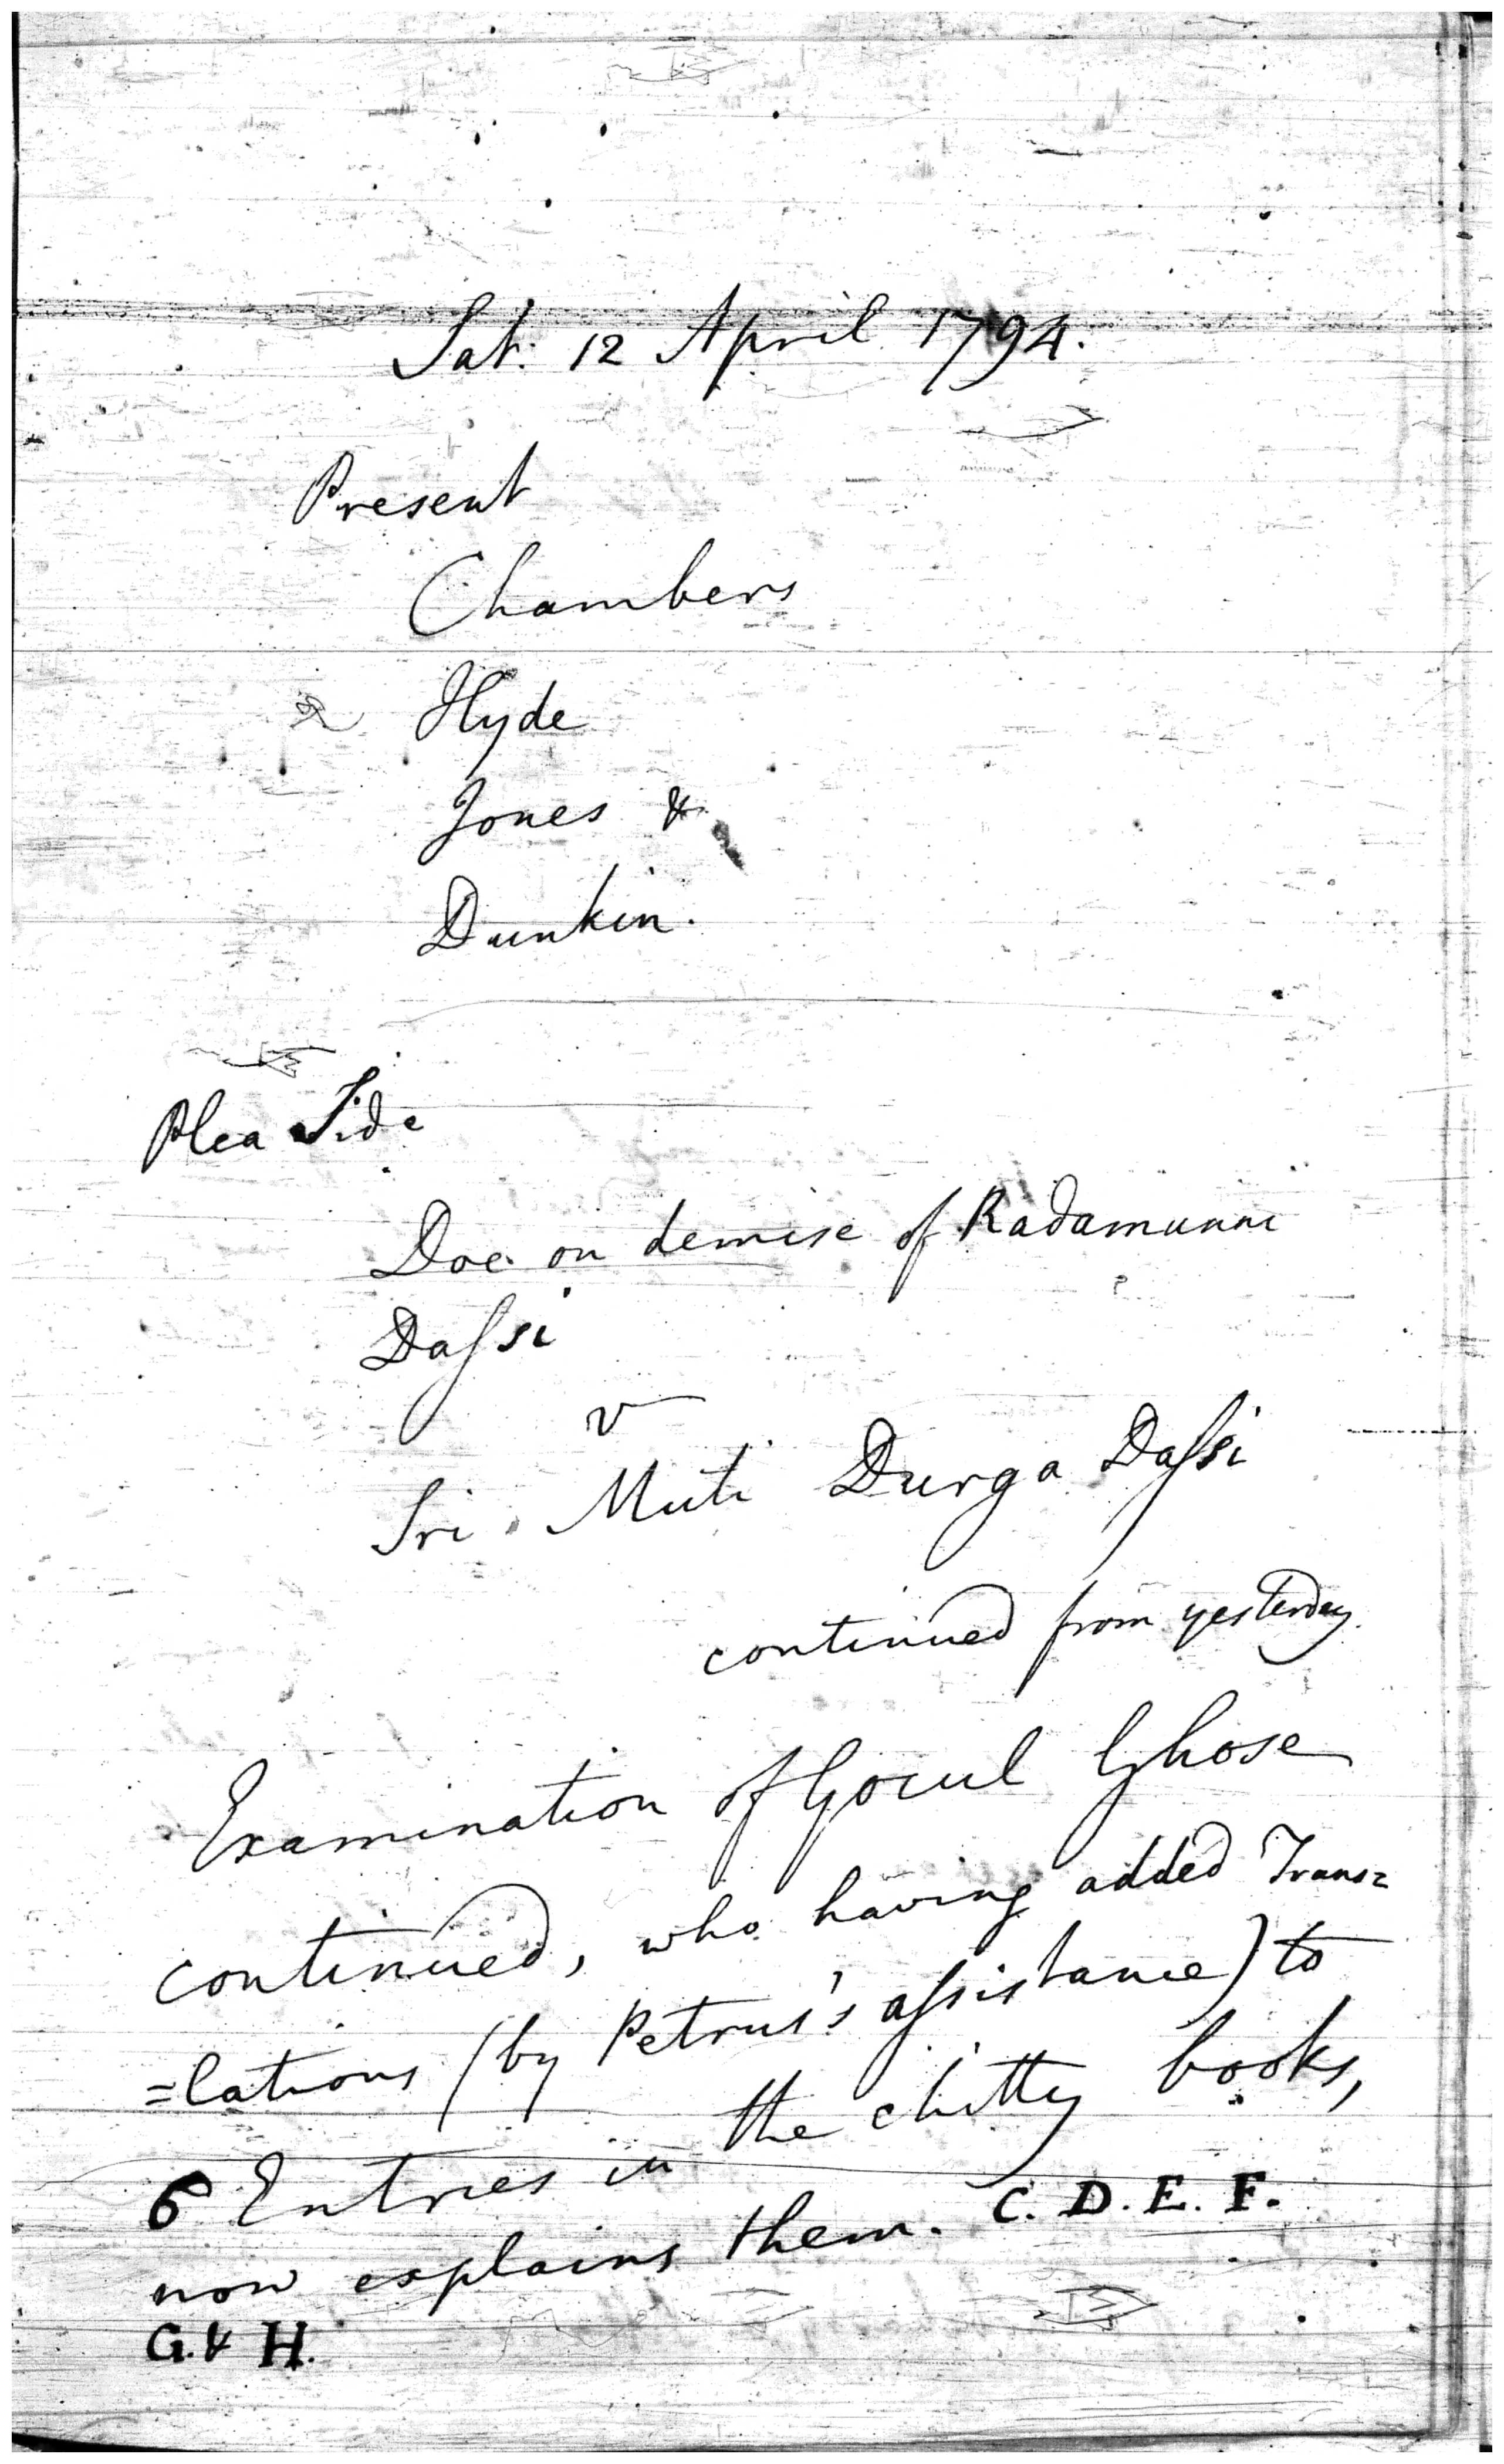 Sat. 12 April 1794.
Present
Chambers
Hyde
Jones &
Dunkin.
Plea Side
Doe on demise of Radamunni
Daſsi
v
Sri Muti Durga Daſsi
continued from yesterday.
Examination of Gocul Ghose
continued, who having added Trans=
=lations (by Petrus's aſsistance) to
6 Entries in the chitty books,
now explains them. C. D. E. F.
G. & H.